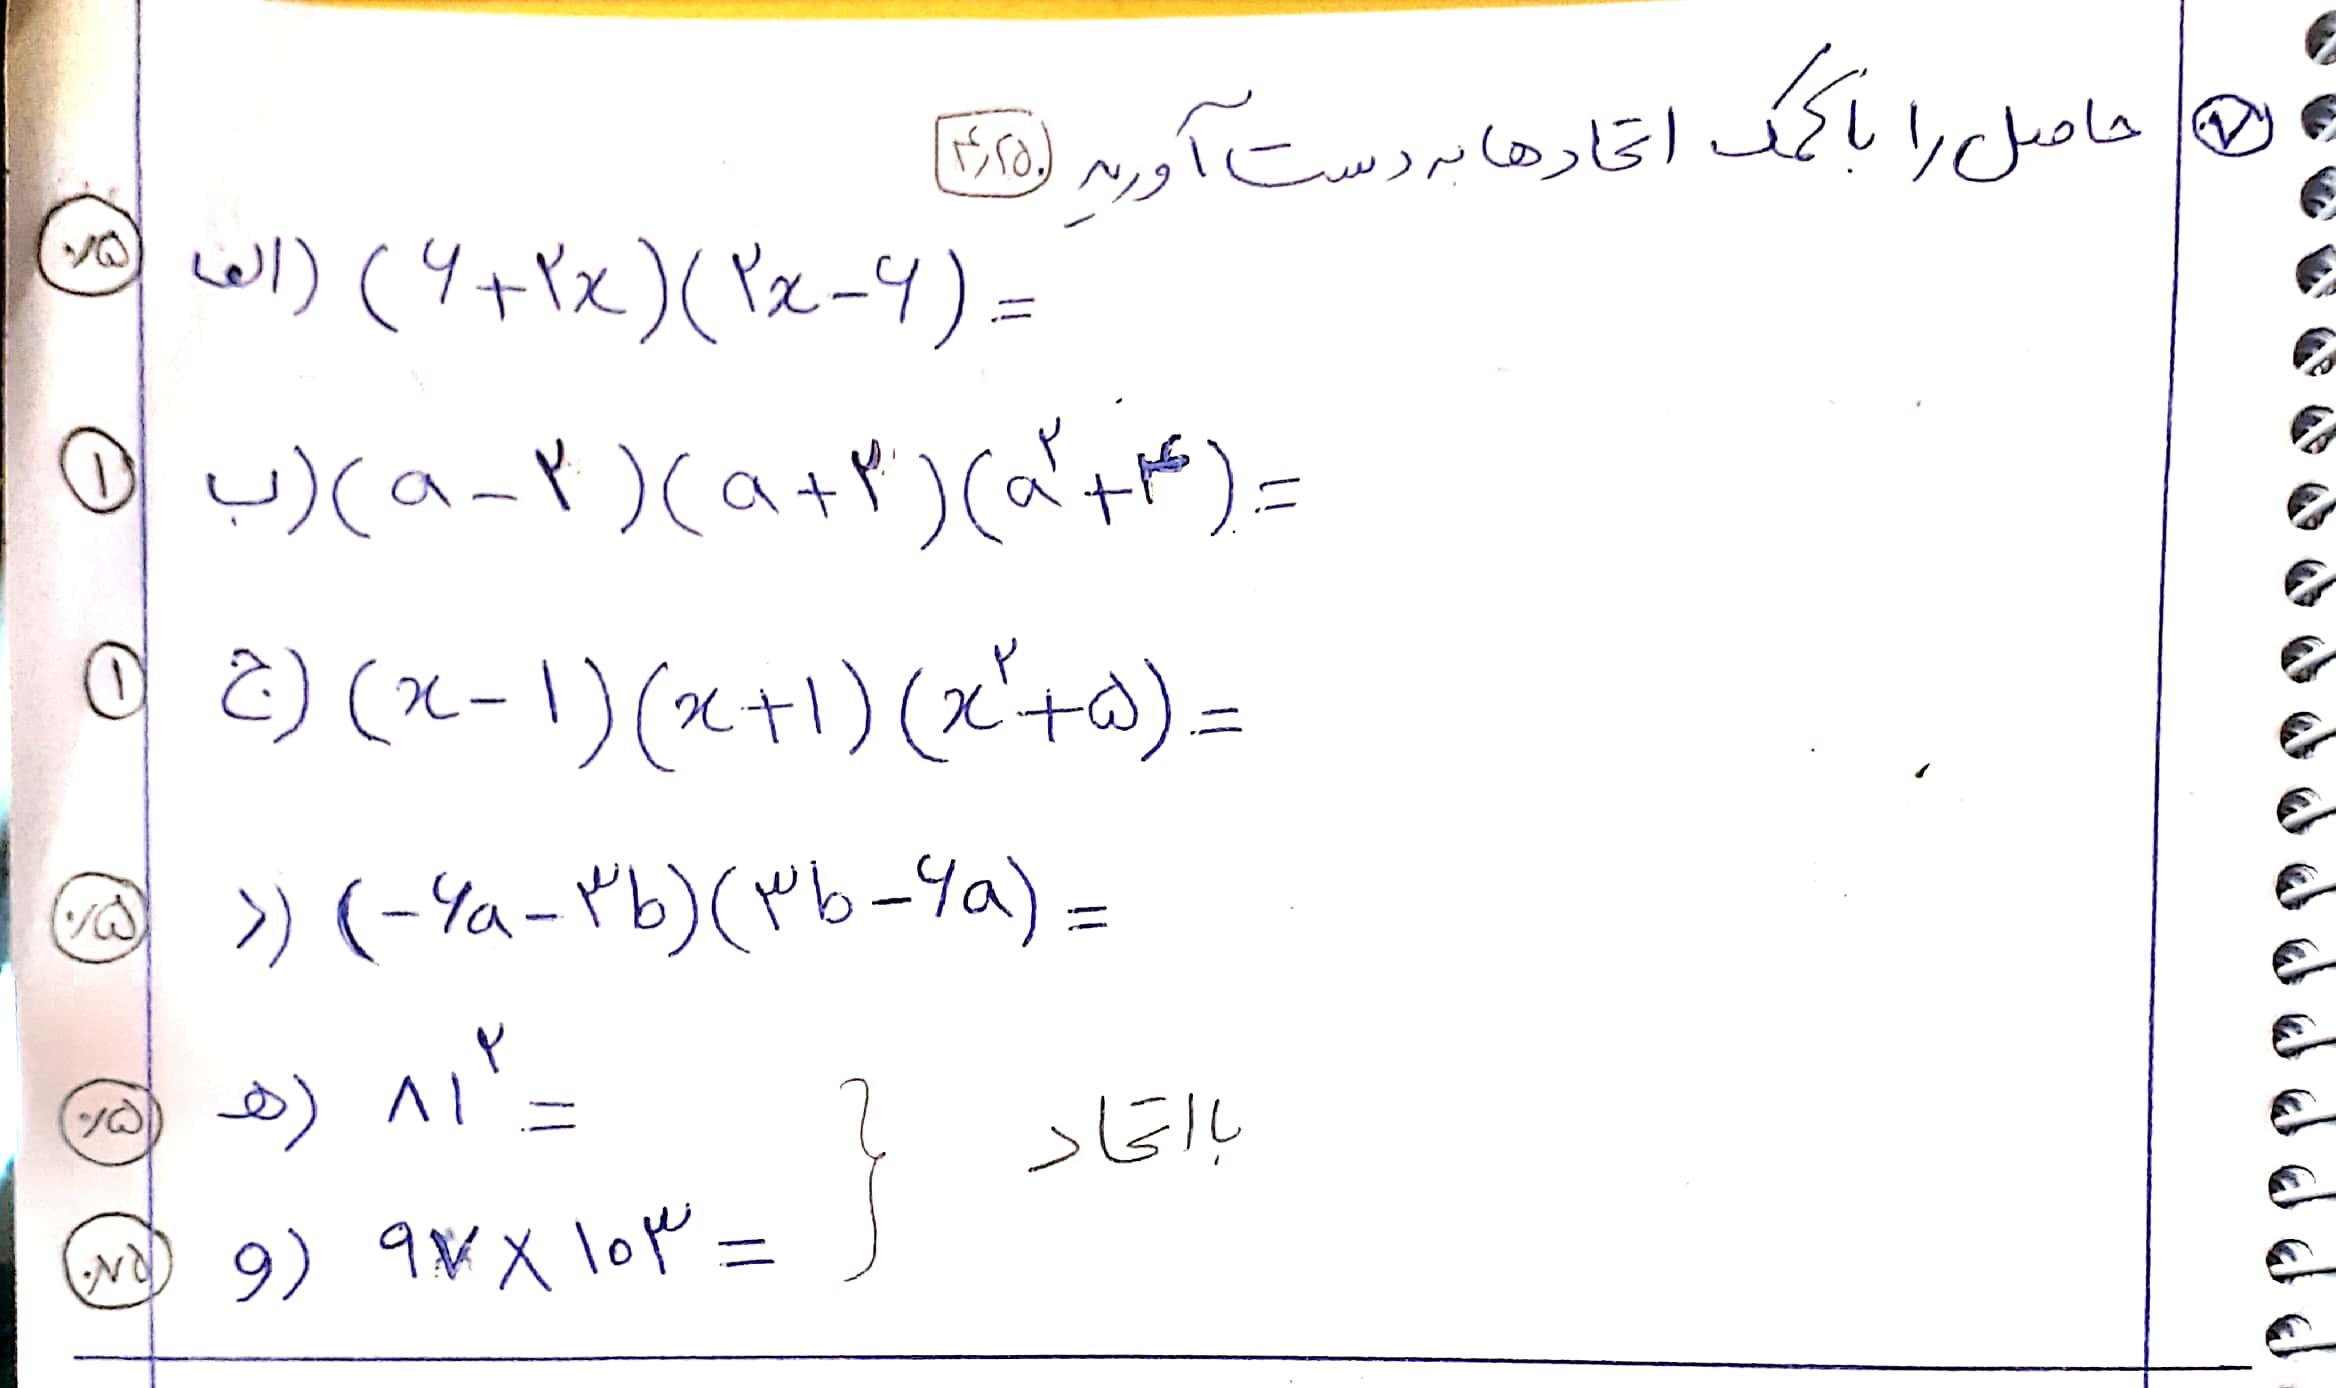 ۷ حاصل را با کمک اتحادها به دست آورید ۴٫۲۵
الف) (۶+۲x)(۲x-۶)= ۰٫۵
ب) (a-۲)(a+۲)(a^۲+۴)= ۱
ج) (x-۱)(x+۱)(x^۲+۵)= ۱
د) (-۶a-۳b)(۳b-۶a)= ۰٫۵
هـ) ۸۱^۲= ۰٫۵
با اتحاد
و) ۹۷×۱۰۳= ۰٫۷۵